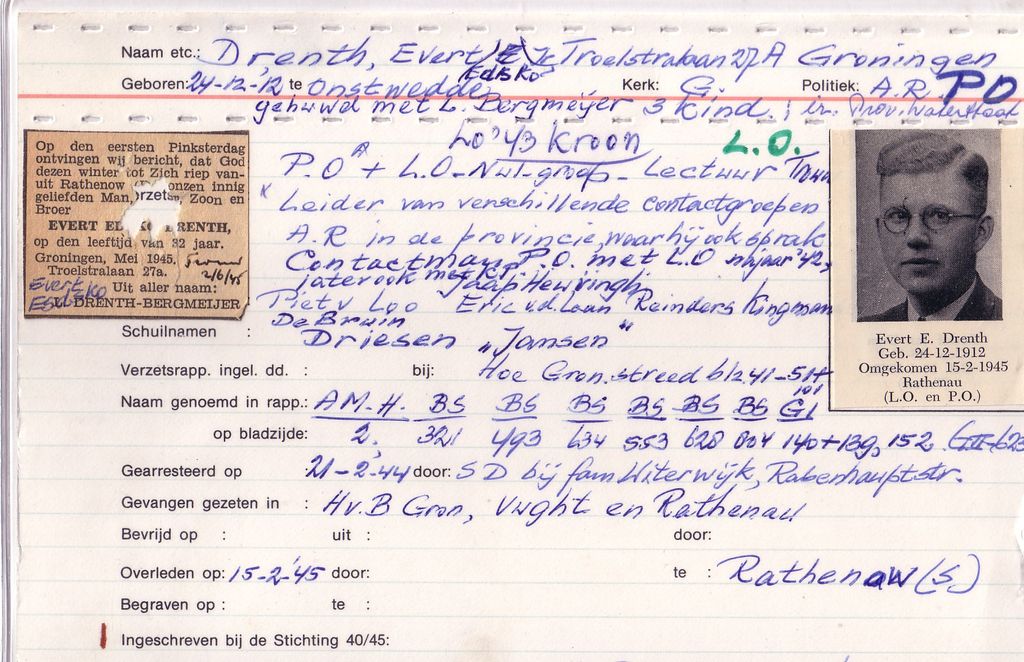 Naam etc.: Drenth, Evert (E) Jr Troelstralaan 27A Groningen
Edisko
Geboren: 24-12-'12 te Onstwedde Kerk: G. Politiek: A.R. PO
gehuwd met L. Bergmeijer 3 kind.; ir. Prov. Waterstaat
LO '43 Kroon L.O.
Op den eersten Pinksterdag
ontvingen wij bericht, dat God
dezen winter tot Zich riep van-
uit Rathenow onzen innig
geliefden Man, Zoon en
Broer
EVERT RENTH,
op den leeftijd van 32 jaar.
Groningen, Mei 1945.
2/6/45
Troelstralaan 27a.
Uit aller naam:
Evert
DRENTH-BERGMEIJER
P.O + L.O-Nat-groep - Lectuur Trouw
Leider van verschillende contactgroepen
A.R in de provincie, waar hij ook sprak
Contactman P.O. met L.O najaar '42,
later ook met KP Jaap
Piet v. Loo Eric v.d. Laan Reinders Kingman
De Bruin
Schuilnamen : Driesen „Jansen"
Verzetsrapp. ingel. dd. : bij: Hoe Gron. streed blz 41-51+
101
Naam genoemd in rapp.: AM-H. BS BS BS BS BS BS G1
op bladzijde: 2. 321 493 634 553 628 804 140+139, 152.
Gearresteerd op : 21-2-'44 door: SD bij fam Witerwijk, Rabenhauptstr.
Gevangen gezeten in : Hv.B Gron, Vught en Rathenau
Bevrijd op : uit : door:
Overleden op: 15-2-'45 door: te : Rathenow (S)
Begraven op : te :
Ingeschreven bij de Stichting 40/45:
Evert E. Drenth
Geb. 24-12-1912
Omgekomen 15-2-1945
Rathenau
(L.O. en P.O.)